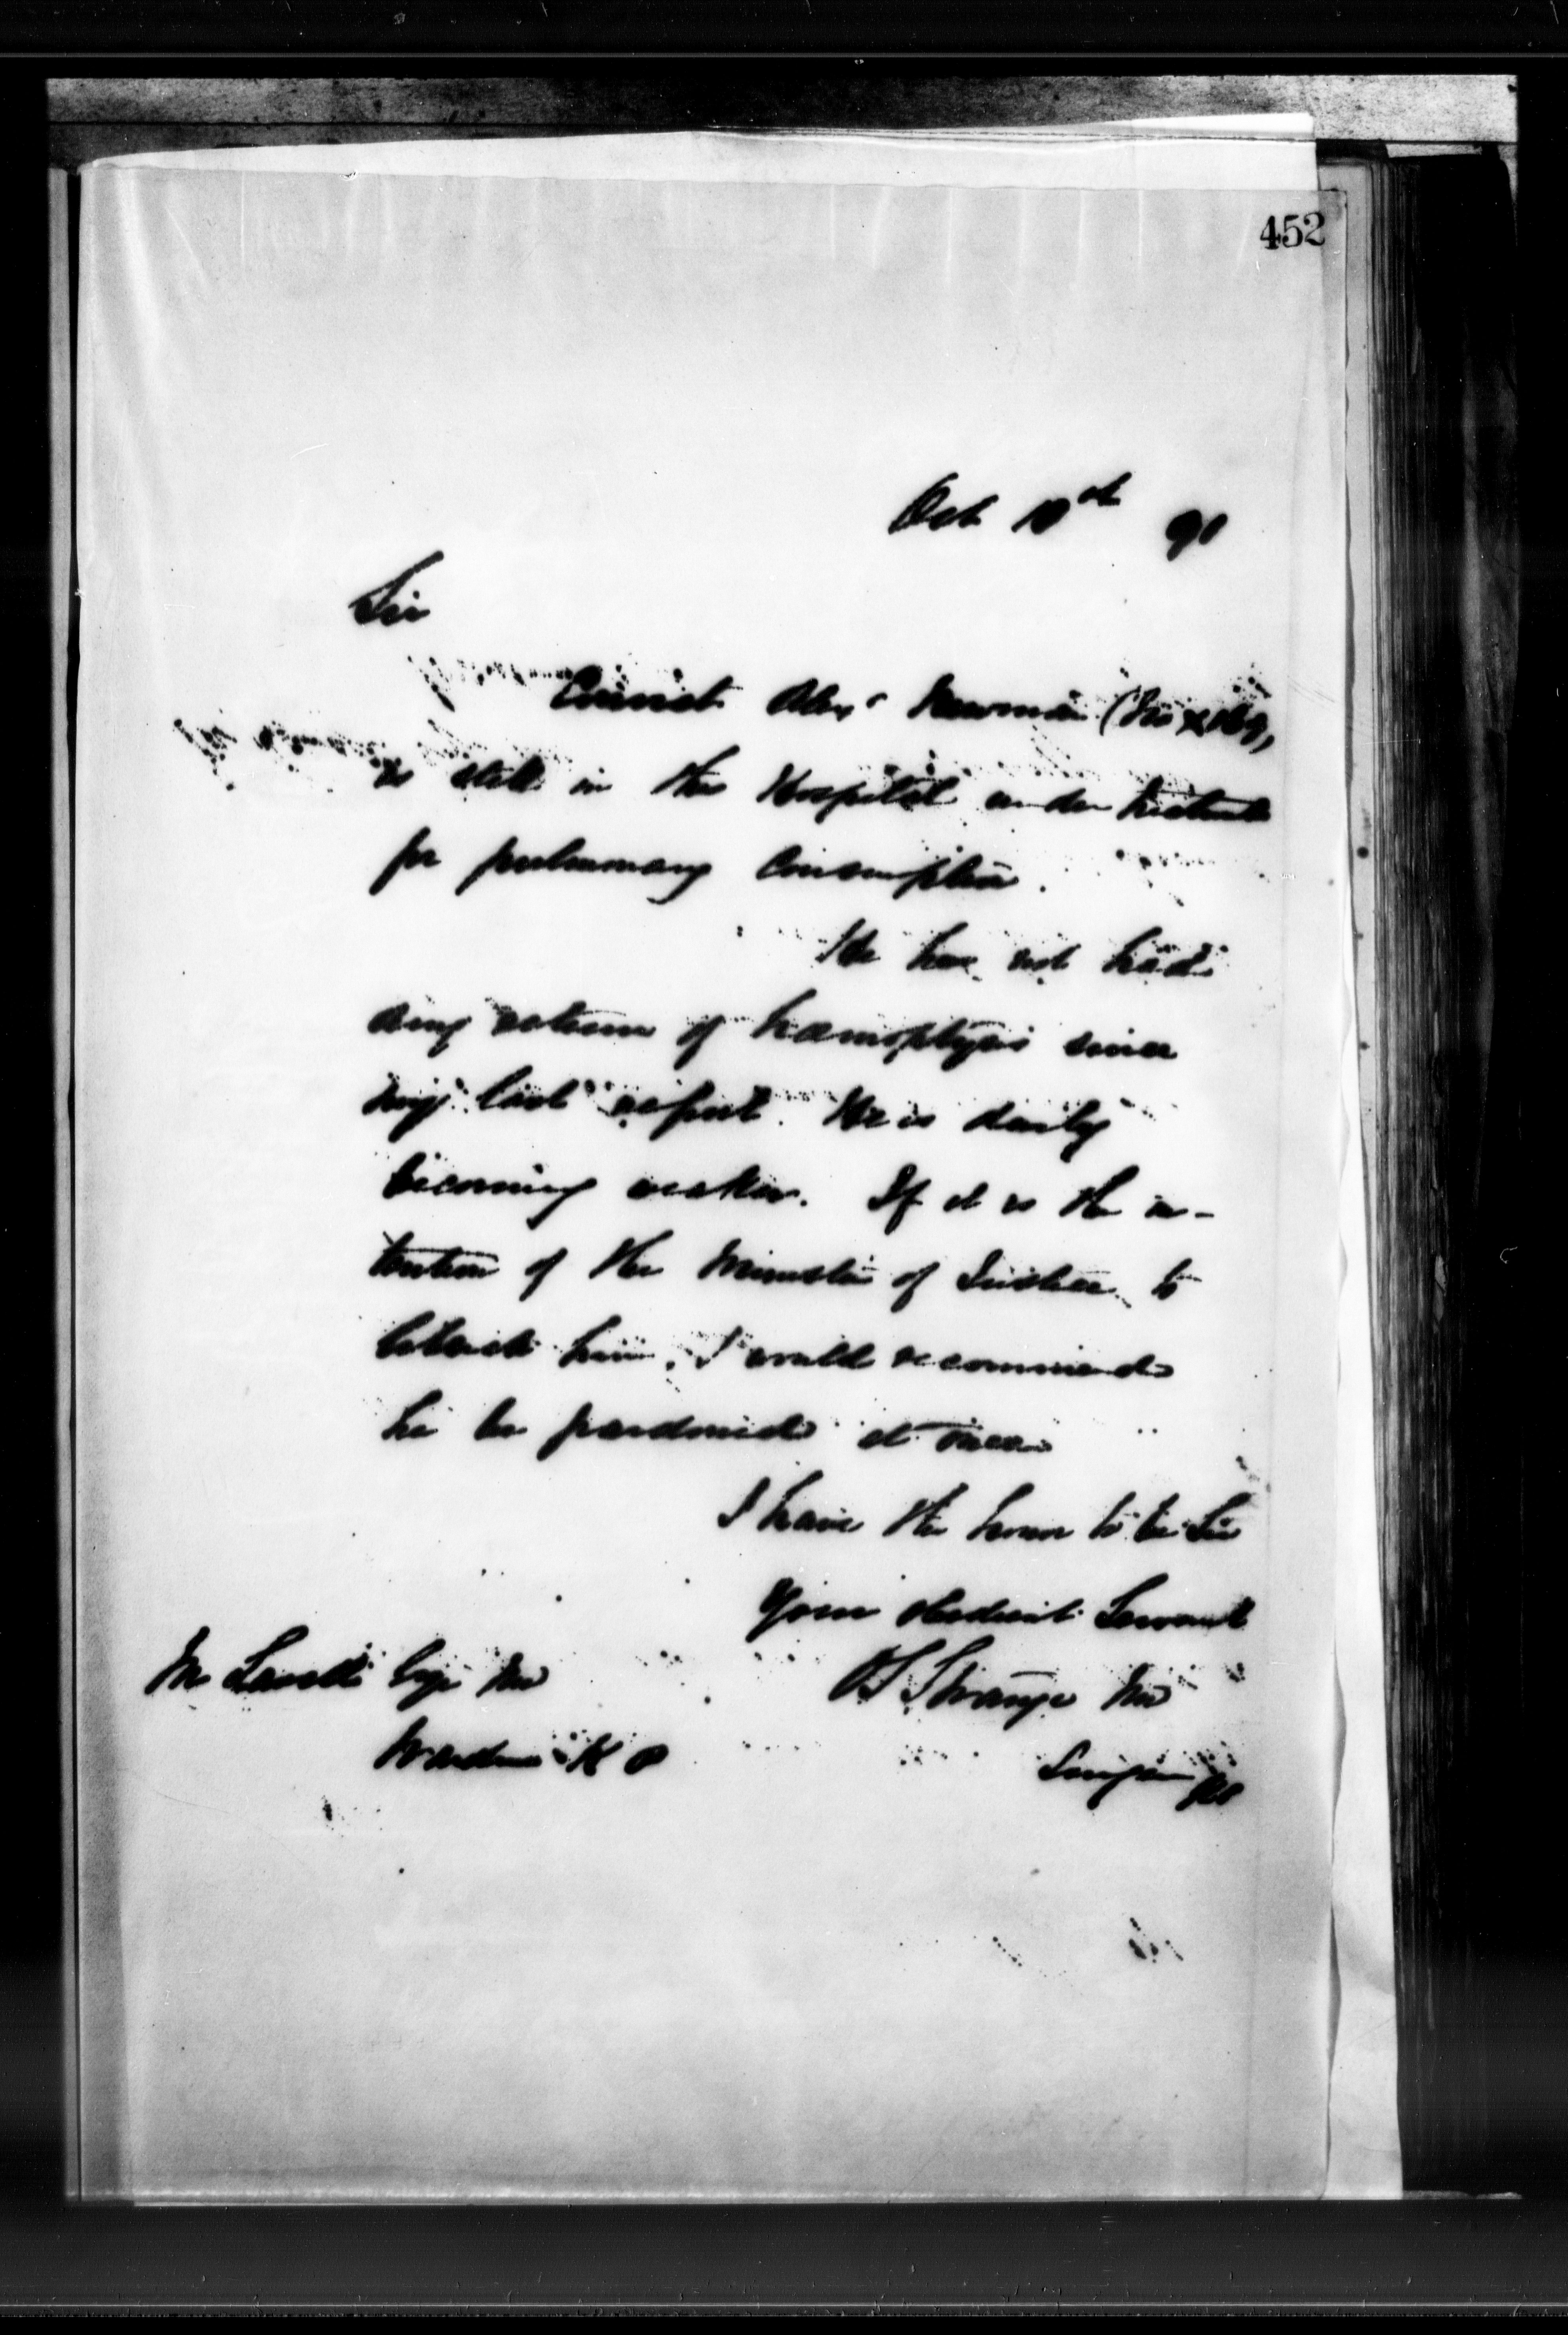 452
Oct 10th 91
Sir
Convict Alexr Newman (No
is still in the Hospital under treatment
for pulmonary consumption.
He has not had
any return of haemoptysis since
my last report. He is daily
becoming weaker. If it is the in-
tention of the Minister of Justice to
liberate him, I would recommend
he be pardoned at once
I have the honor to be Sir
Your obedient Servant
M Lavell Esqr MD
OS Strange MD
Warden K P
Surgeon KP